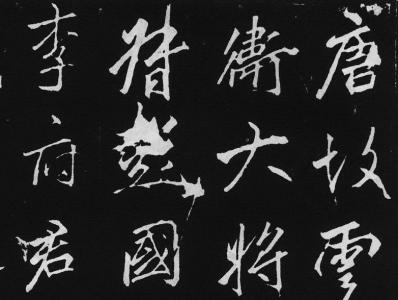 唐故雲
衛大將
督彭國
李府君